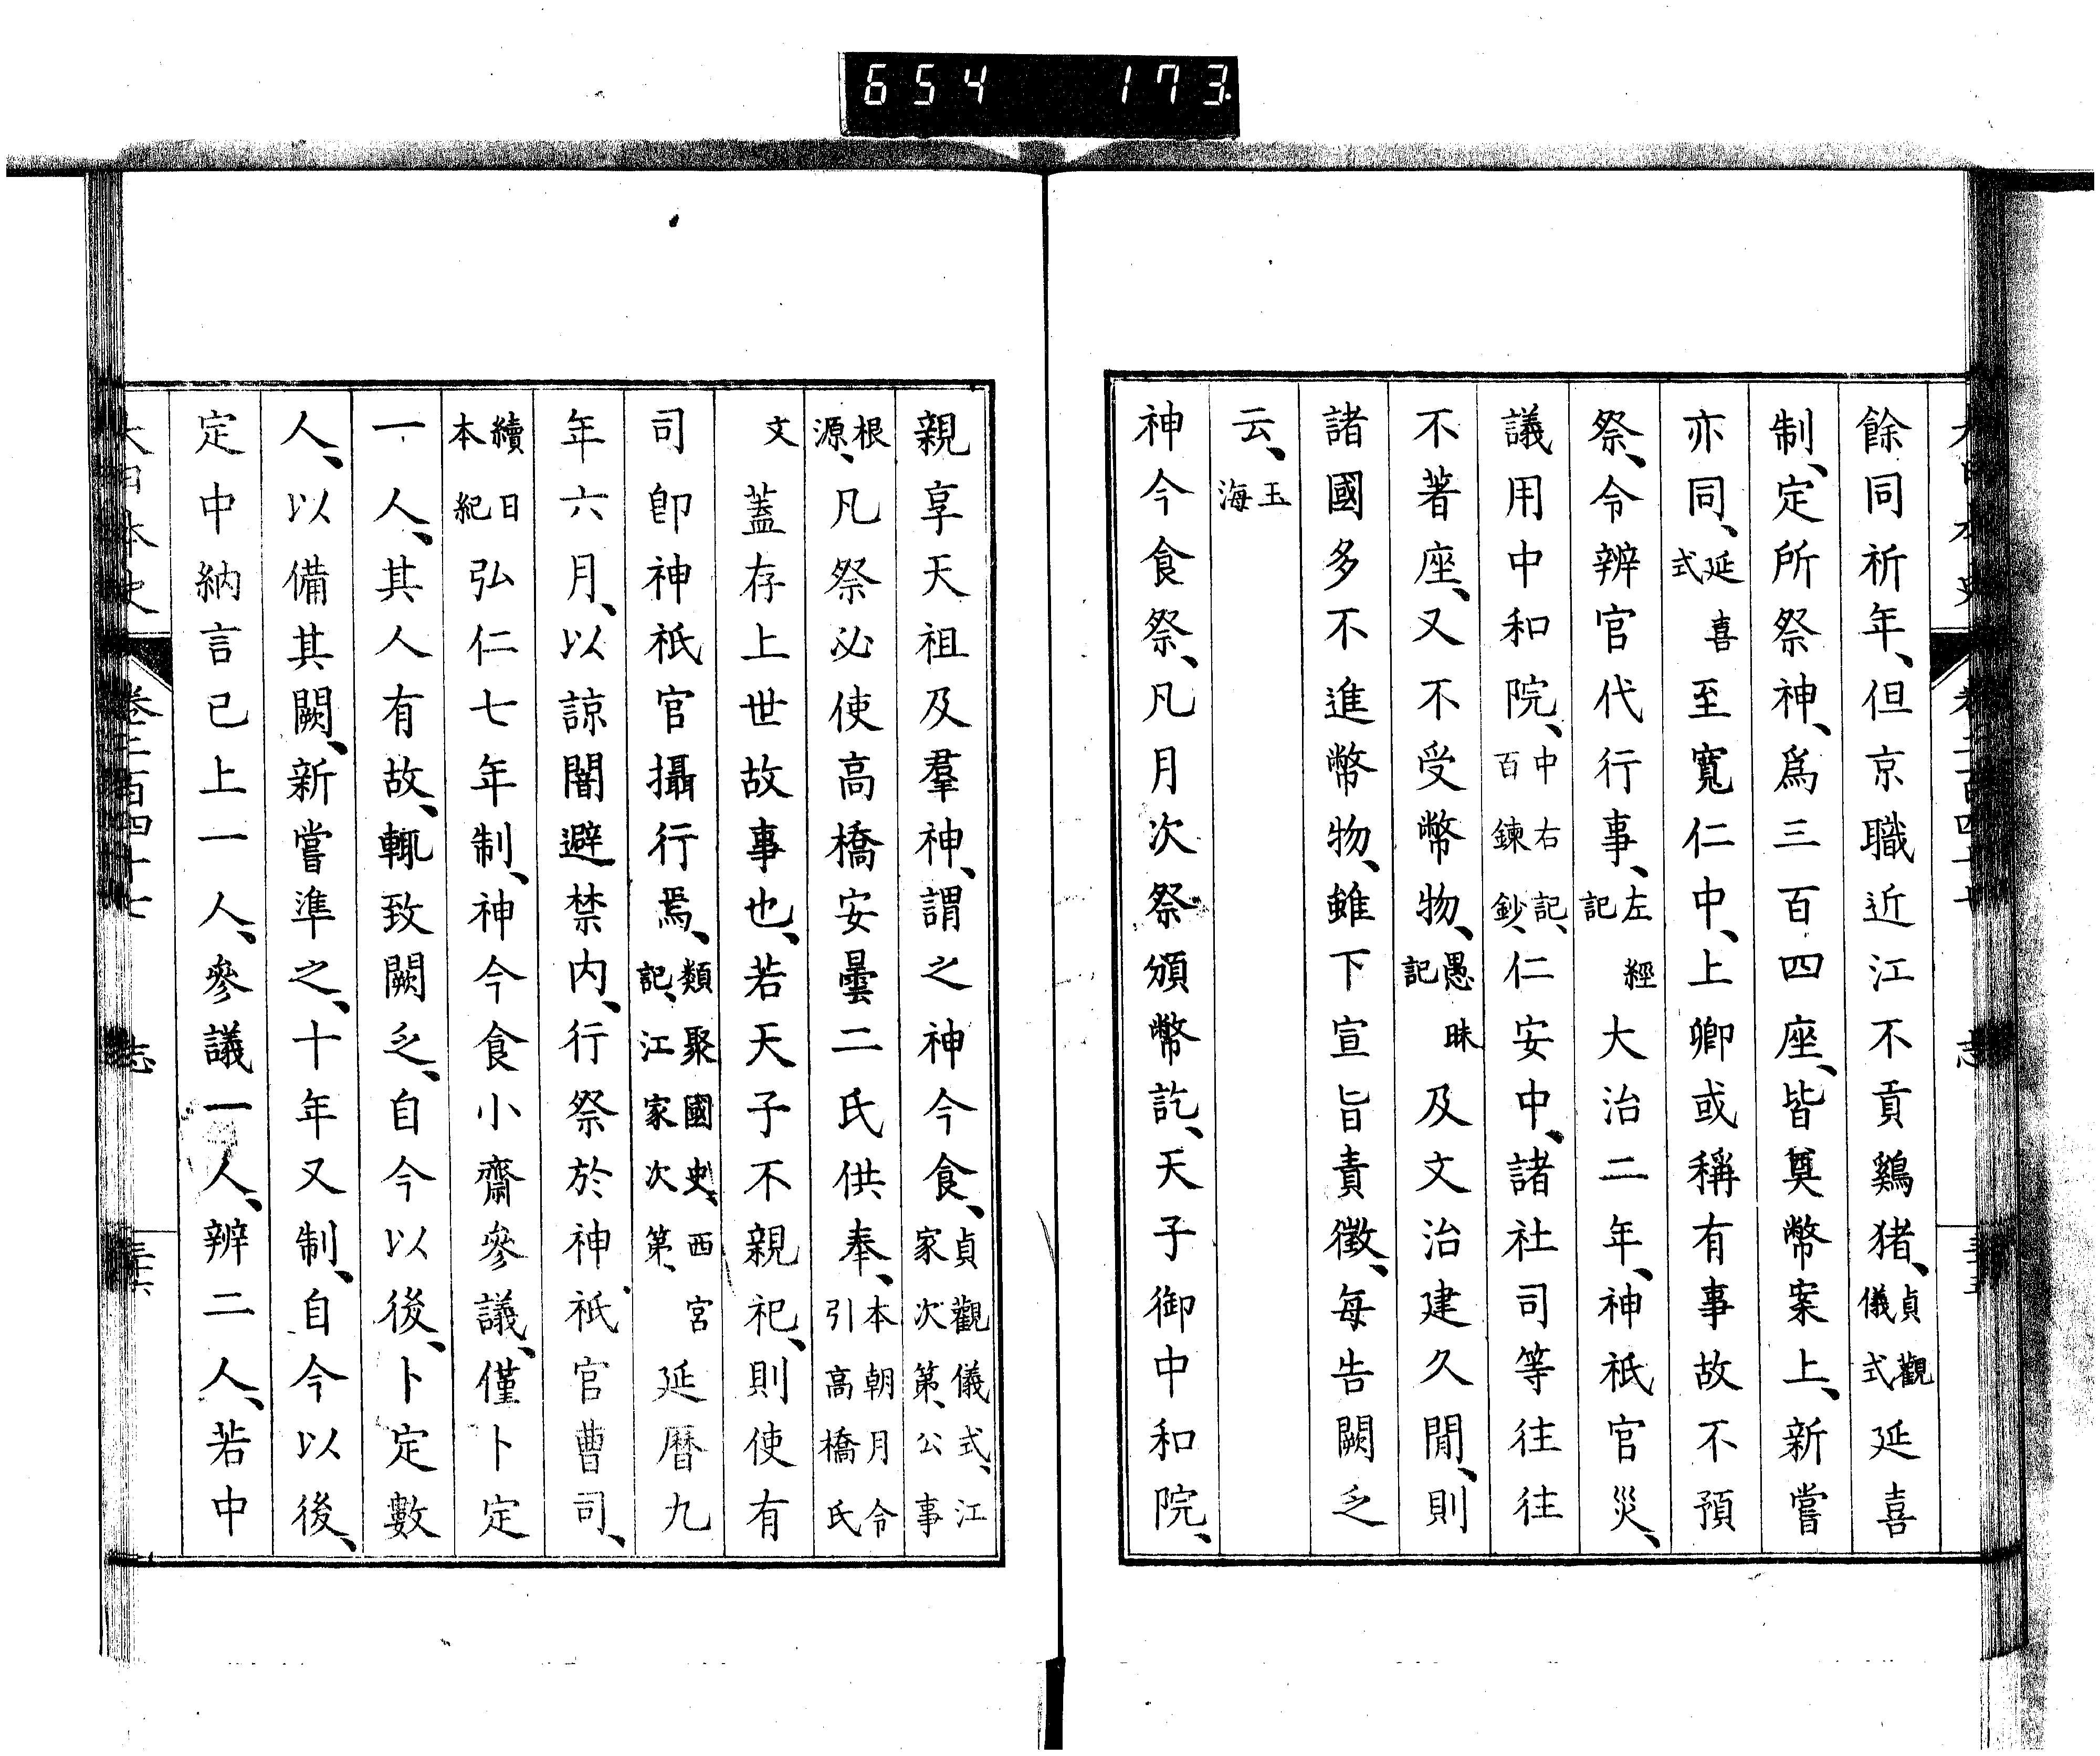 654 173
餘同祈年、但京職近江不貢鷄猪、貞觀儀式延喜
制、定所祭神、爲三百四座、皆奠幣案上、新嘗
亦同、延喜式至寬仁中、上卿或稱有事故不預
祭、令辨官代行事、左經記大治二年、神祇官災、
議用中和院、中右記、百鍊鈔、仁安中、諸社司等往往
不著座、又不受幣物、愚昧記及文治建久閒、則
諸國多不進幣物、雖下宣旨責徵、每告闕乏
云、玉海
神今食祭、凡月次祭頒幣訖、天子御中和院、
親享天祖及羣神、謂之神今食、貞觀儀式、江家次第、公事
根源、凡祭必使高橋安曇二氏供奉、本朝月令引高橋氏
文蓋存上世故事也、若天子不親祀、則使有
司卽神祇官攝行焉、類聚國史、西宮記、江家次第、延曆九
年六月、以諒闇避禁內、行祭於神祇官曹司、
續日本紀弘仁七年制、神今食小齋參議、僅卜定
一人、其人有故、輒致闕乏、自今以後、卜定數
人、以備其闕、新嘗準之、十年又制、自今以後、
定中納言已上一人、參議一人、辨二人、若中
大日本史 卷二百四十七 志